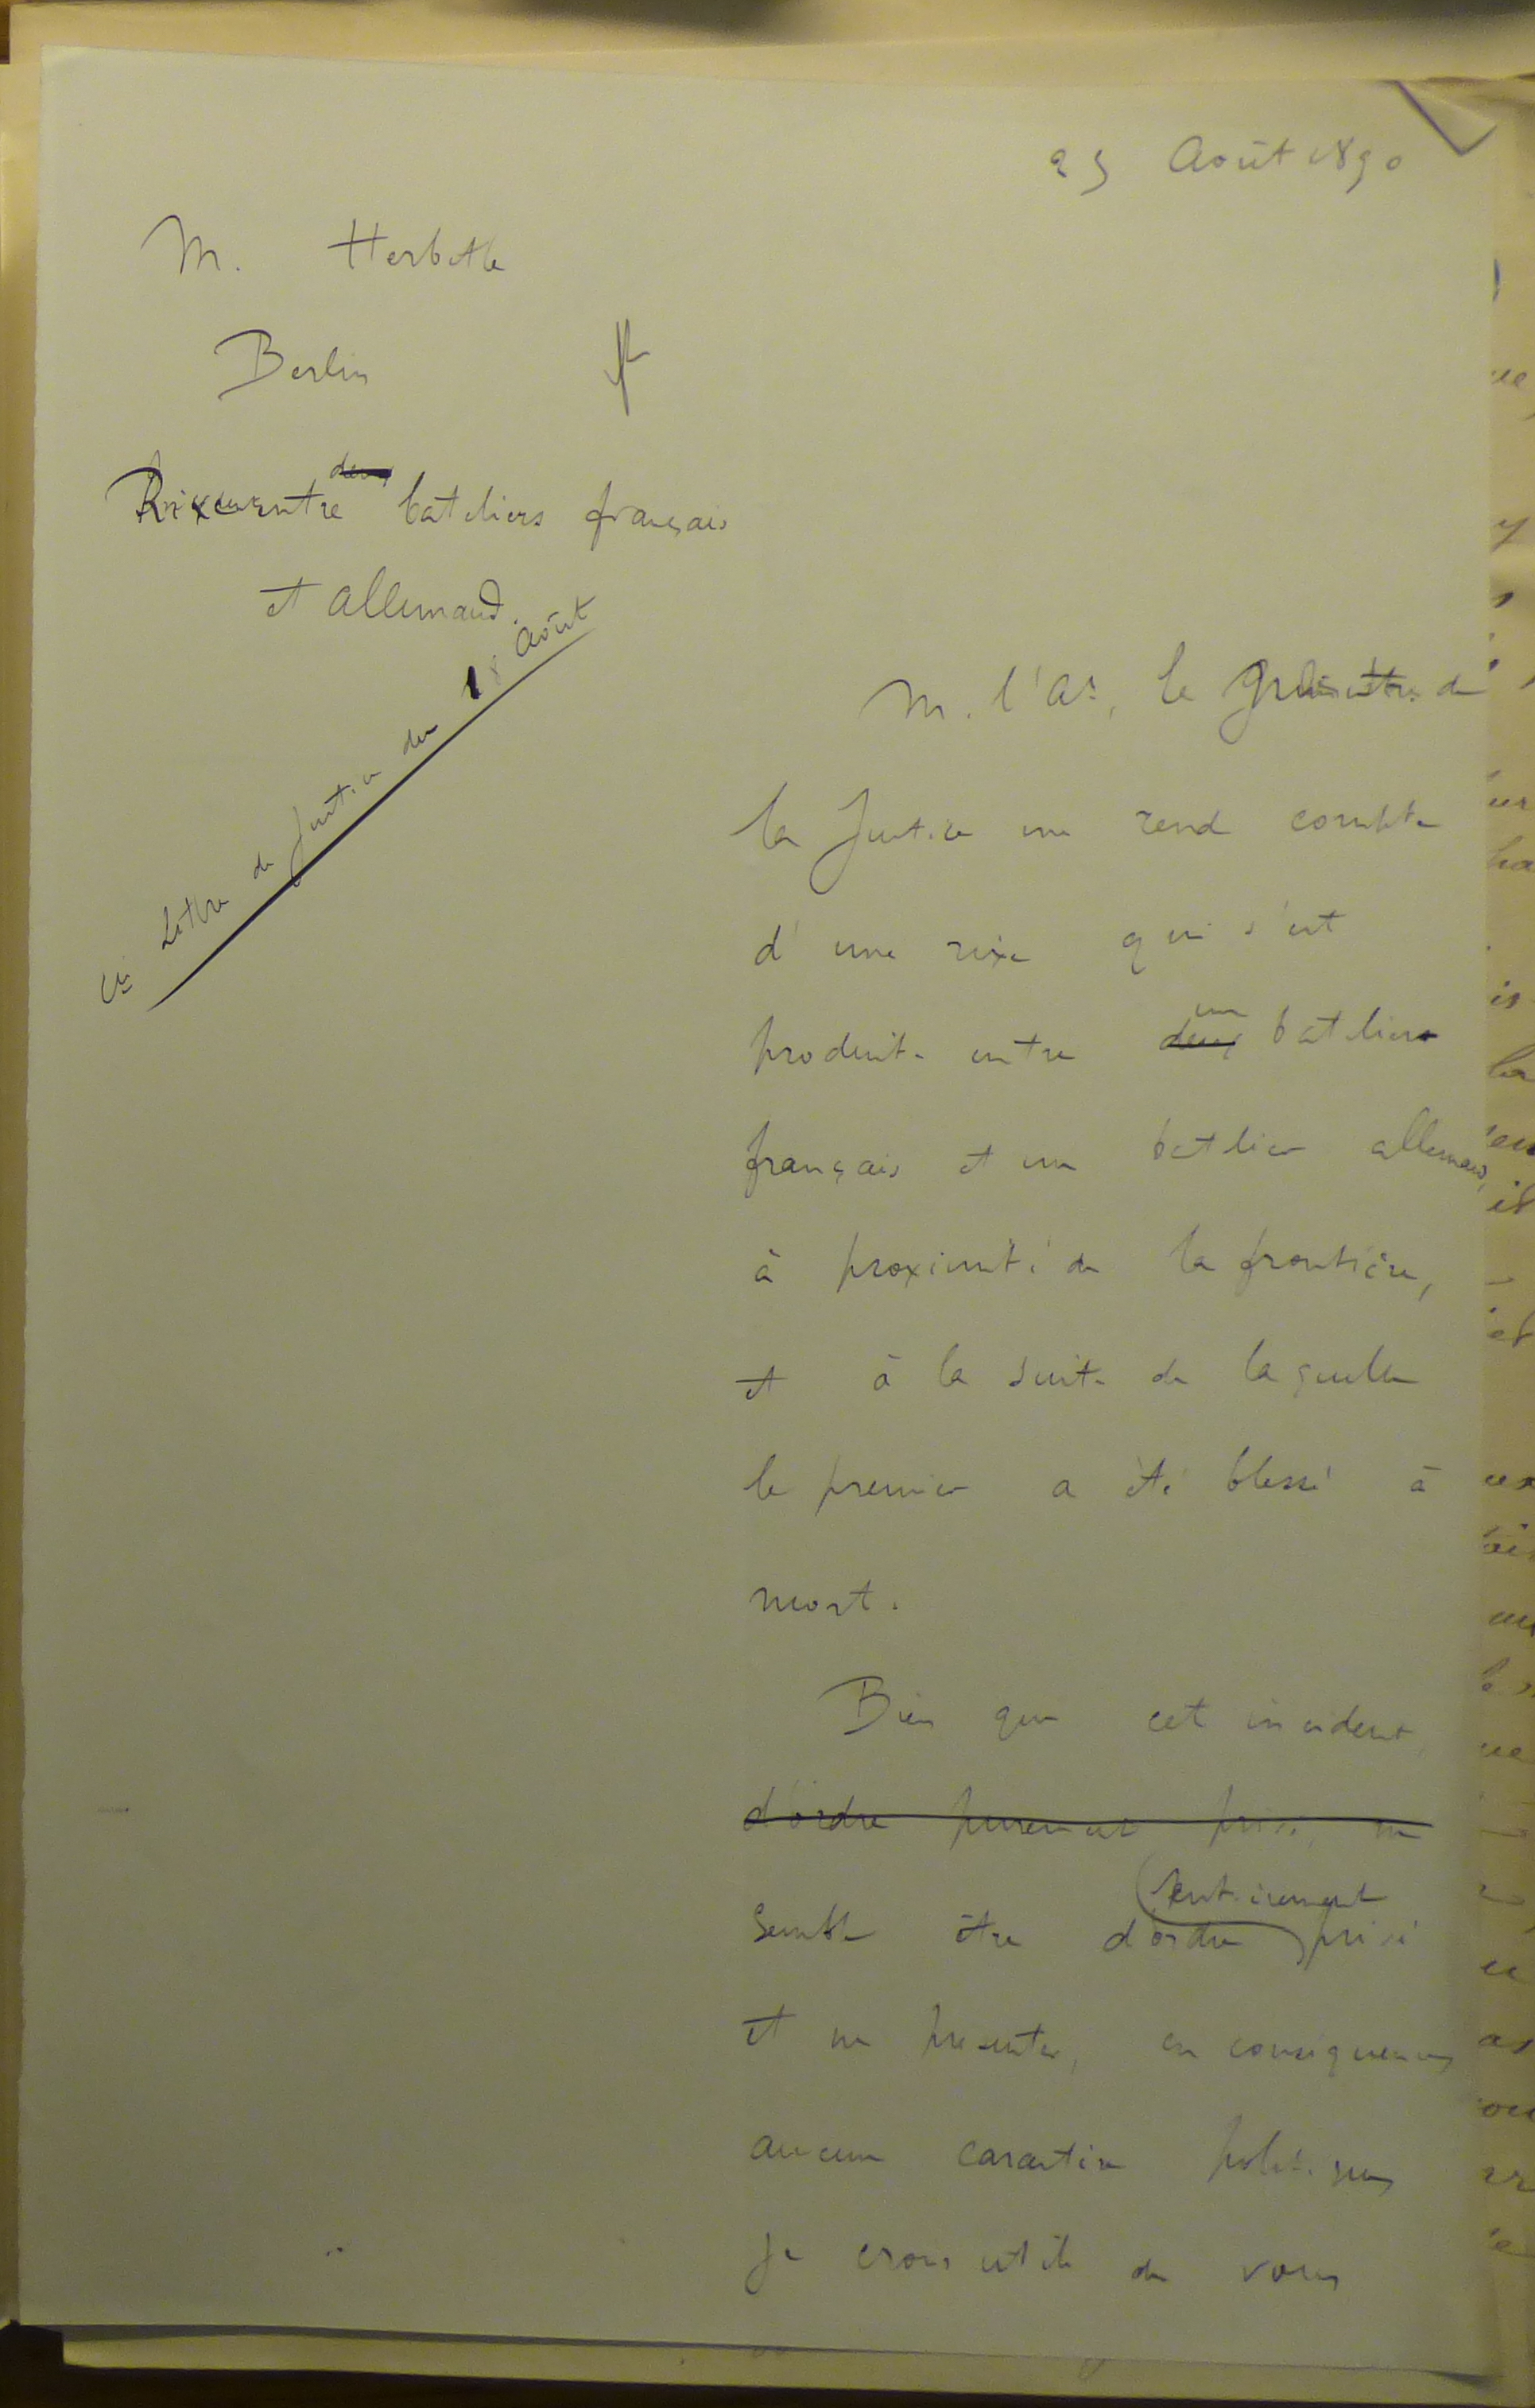 25 Août 1890
M. Herbette
Berlin
Rixe entre deux bateliers français
et allemand.
Lettre de Justice du 18 Août
M. l'Ar, le Ministre de
la Justice me rend compte
d'une rixe qui s'est
produite entre deux un batelier
français et un batelier allemand,
à proximité de la frontière,
et à la suite de laquelle
le premier a été blessé à
mort.
Bien que cet incident
d'ordre purement privé, ne
semble être d'ordre entièrement privé
et ne présenter, en conséquence,
aucun caractère politique,
je crois utile de vous